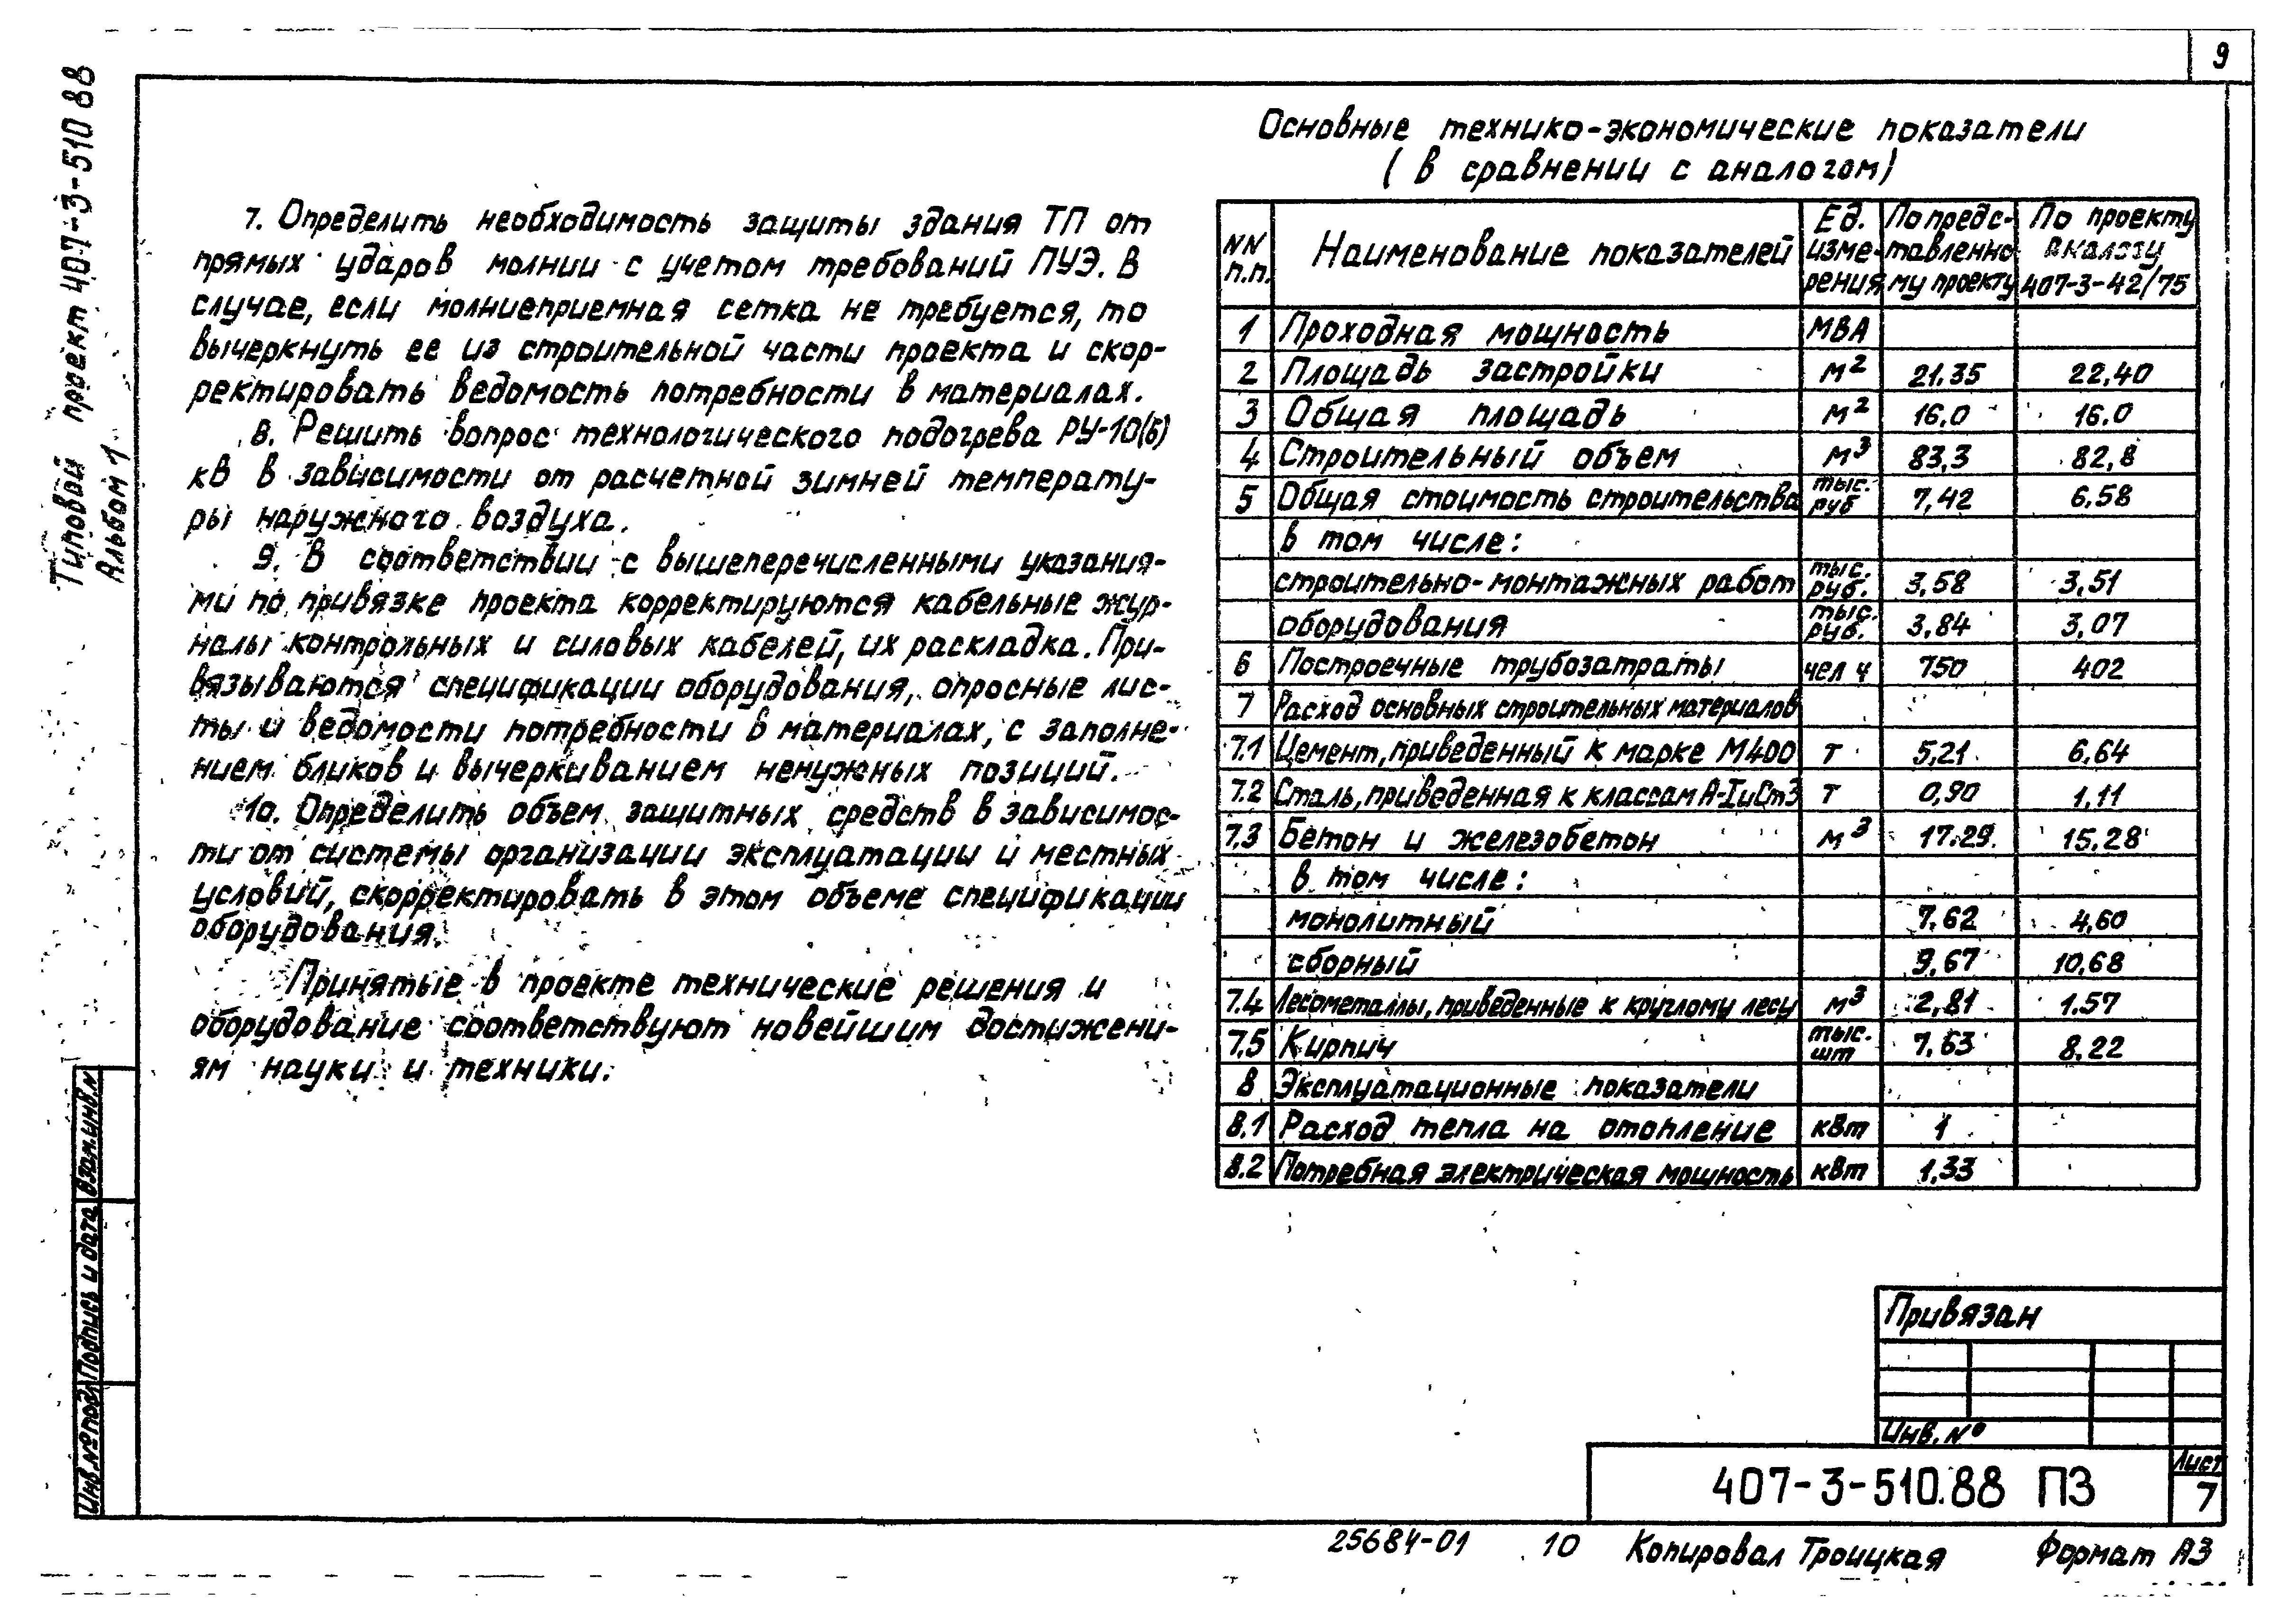 9
Типовой проект 407-3-510 88
Альбом 1
7. Определить необходимость защиты здания ТП от
прямых ударов молнии с учетом требований ПУЭ. В
случае, если молниеприемная сетка не требуется, то
вычеркнуть ее из строительной части проекта и скор-
ректировать ведомость потребности в материалах.
8. Решить вопрос технологического подогрева РУ-10(6)
кВ в зависимости от расчетной зимней температу-
ры наружного воздуха.
9. В соответствии с вышеперечисленными указания-
ми по привязке проекта корректируются кабельные жур-
налы контрольных и силовых кабелей, их раскладка. При-
вязываются спецификации оборудования, опросные лис-
ты и ведомости потребности в материалах, с заполне-
нием бликов и вычеркиванием ненужных позиций.
10. Определить объем защитных средств в зависимос-
ти от системы организации эксплуатации и местных
условий, скорректировать в этом объеме спецификации
оборудования.
Принятые в проекте технические решения и
оборудование соответствуют новейшим достижени-
ям науки и техники.
Основные технико-экономические показатели
(в сравнении с аналогом)
NN п.п. Наименование показателей Ед. изме-рения По предс-тавленно-му проекту По проекту аналогу 407-3-42/75
1 Проходная мощность МВА
2 Площадь застройки м² 21.35 22,40
3 Общая площадь м² 16.0 16.0
4 Строительный объем м³ 83,3 82,8
5 Общая стоимость строительства тыс. руб 7,42 6,58
в том числе:
строительно-монтажных работ тыс. руб. 3,58 3,51
оборудования тыс. руб. 3,84 3,07
6 Построечные трубозатраты чел ч 750 402
7 Расход основных строительных материалов
7.1 Цемент, приведенный к марке М400 т 5,21 6,64
7.2 Сталь, приведенная к классам А-I и Ст3 т 0,90 1,11
7.3 Бетон и железобетон м³ 17.29 15,28
в том числе:
монолитный 7,62 4,60
сборный 9,67 10,68
7.4 Лесометаллы, приведенные к круглому лесу м³ 2,81 1.57
7.5 Кирпич тыс. шт 7,63 8,22
8 Эксплуатационные показатели
8.1 Расход тепла на отопление кВт 1
8.2 Потребная электрическая мощность кВт 1,33
Взам.инв.N
Подпись и дата
Инв.№ подл
Привязан
Инв.№
407-3-510.88 ПЗ
Лист
7
25684-01 10 Копировал Троицкая Формат А3